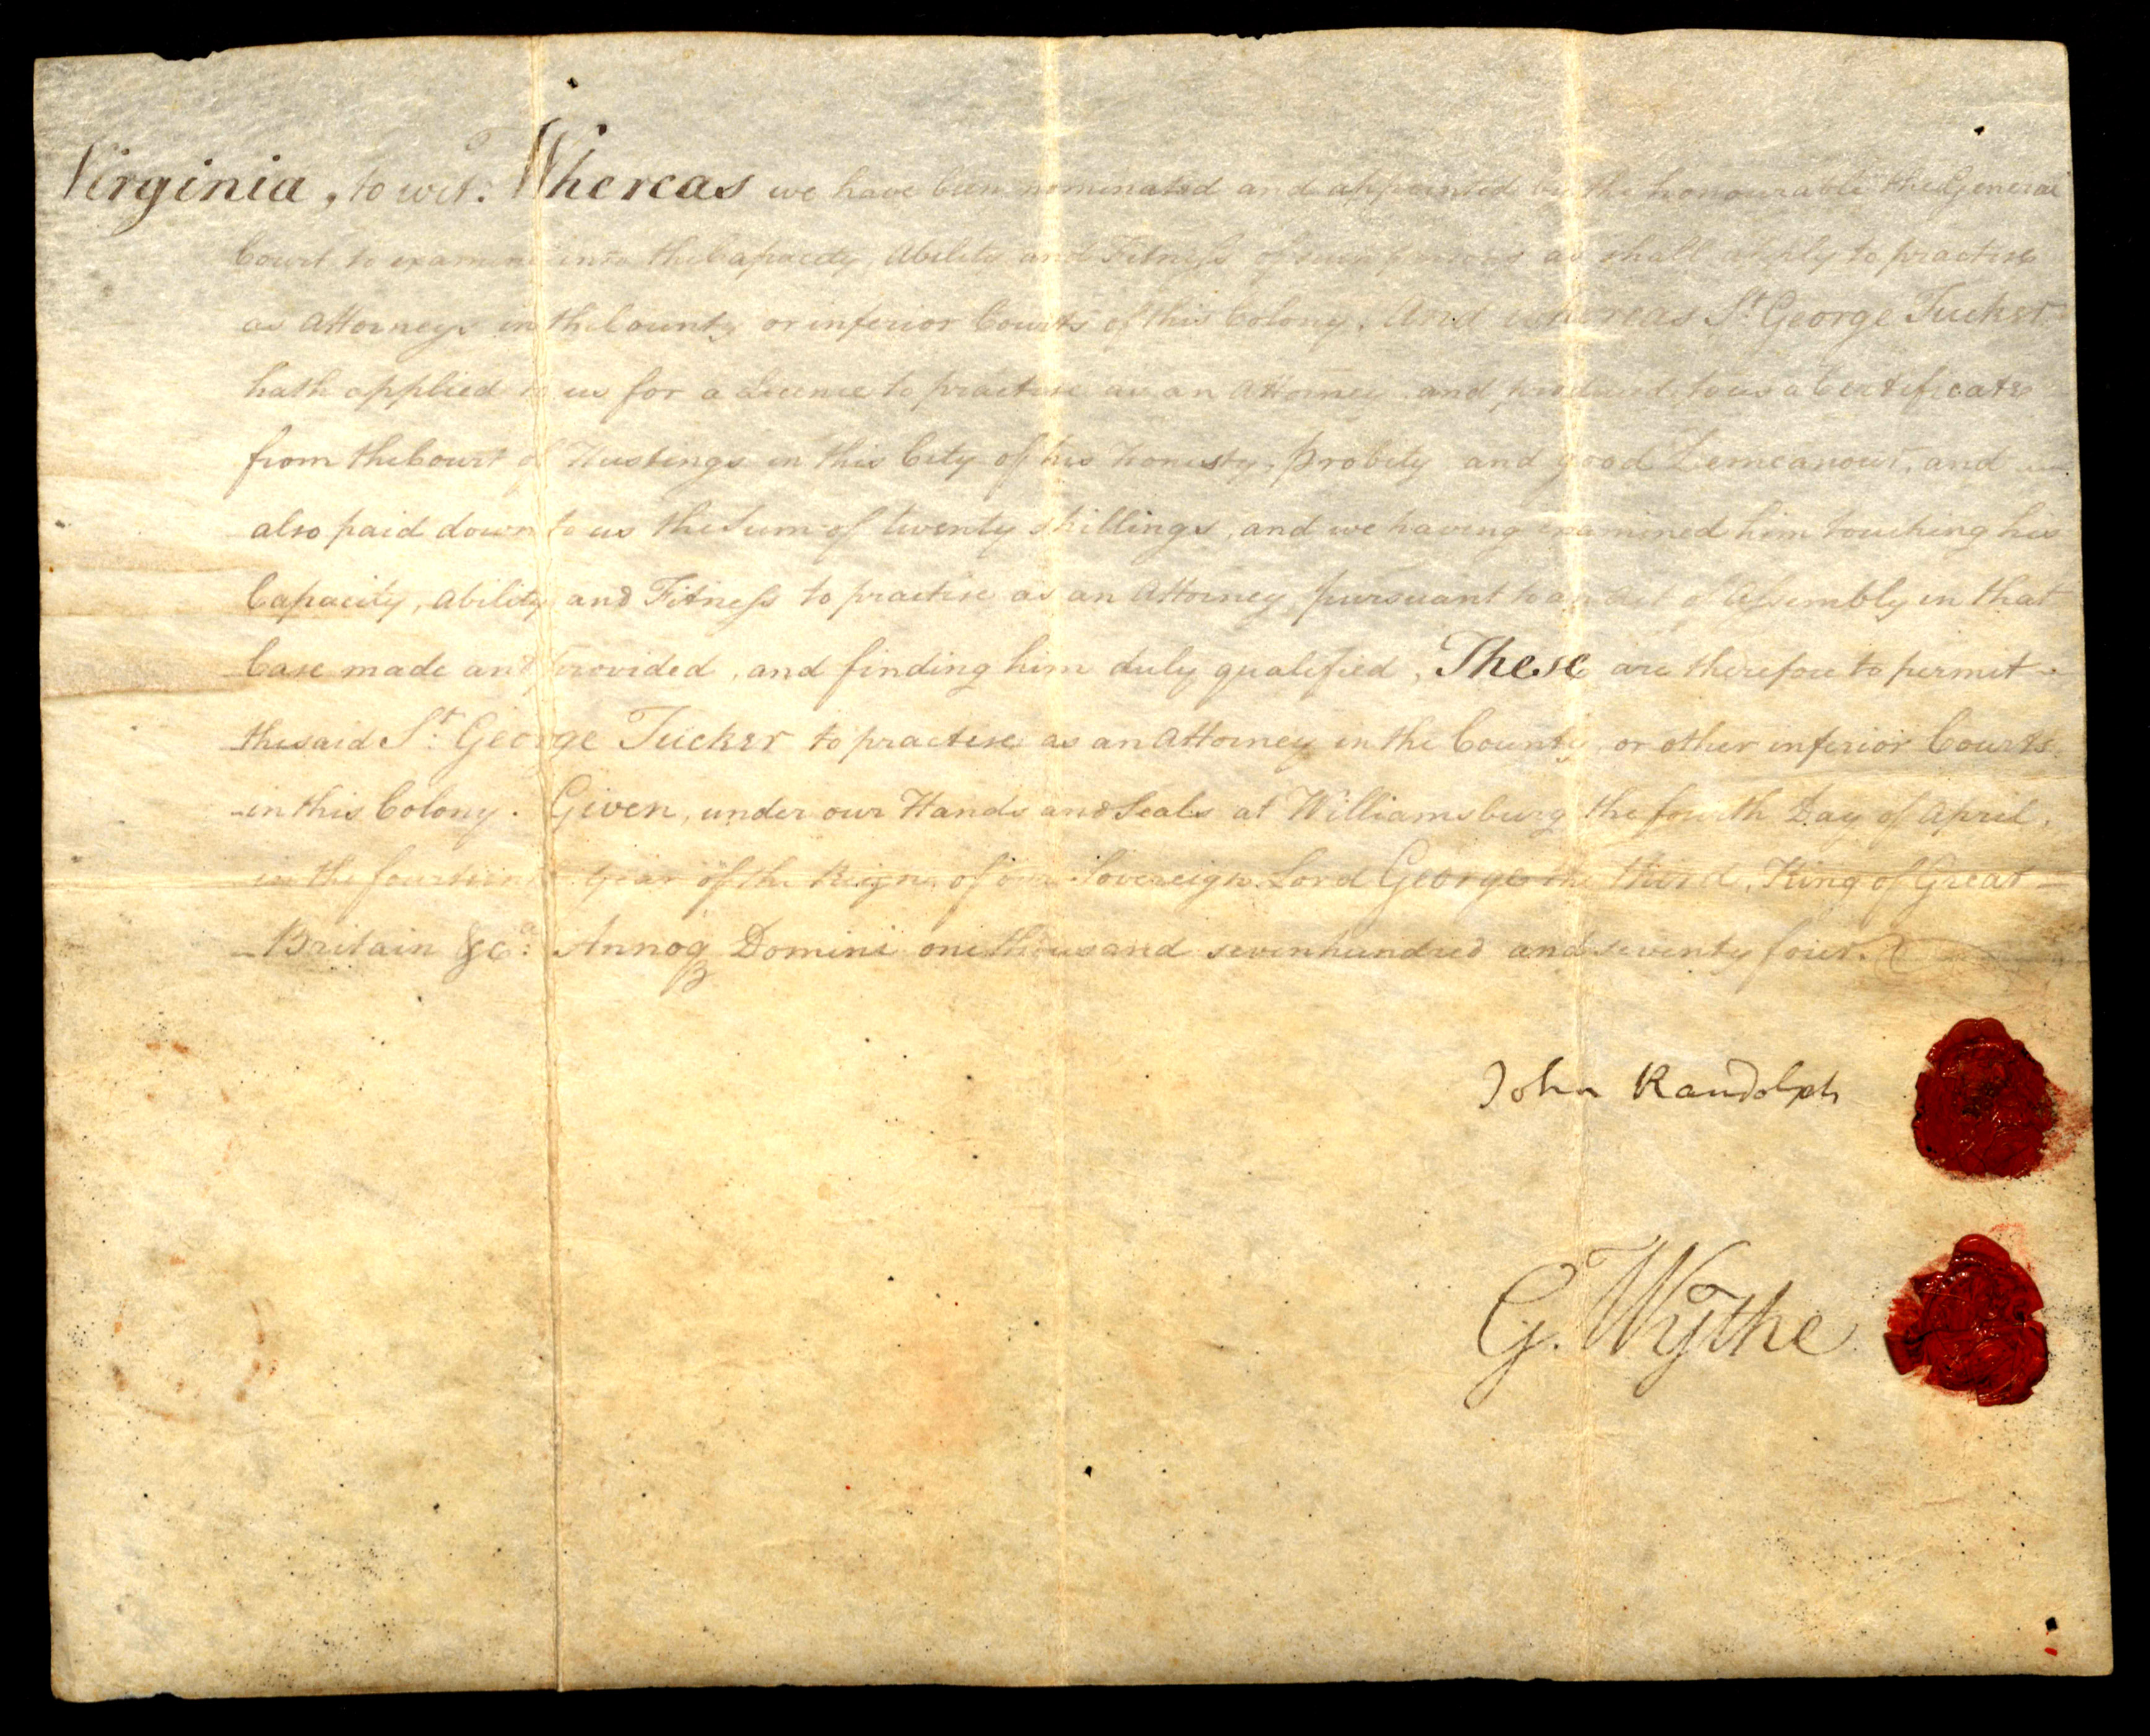 Virginia, to wit. Whereas we have been nominated and appointed by the honourable the General
Court to examine into the Capacity, Ability and Fitness of such persons as shall apply to practise
as Attorneys in the County or inferior Courts of this Colony. And whereas St. George Tucker
hath applied to us for a Licence to practise as an Attorney and produced to us a Certificate
from the Court of Hustings in this City of his Honesty, Probity and good Demeanour, and
also paid down to us the Sum of twenty shillings, and we having examined him touching his
Capacity, Ability and Fitness to practise as an Attorney pursuant to an Act of Assembly in that
Case made and provided, and finding him duly qualified, These are therefore to permit
the said St. George Tucker to practise as an Attorney in the County, or other inferior Courts
in this Colony. Given, under our Hands and Seals at Williamsburg the fourth Day of April,
in the fourteenth year of the Reign of our Sovereign Lord George the third, King of Great
Britain &Ca: Annoq Domini one thousand seven hundred and seventy four.
John Randolph
G. Wythe